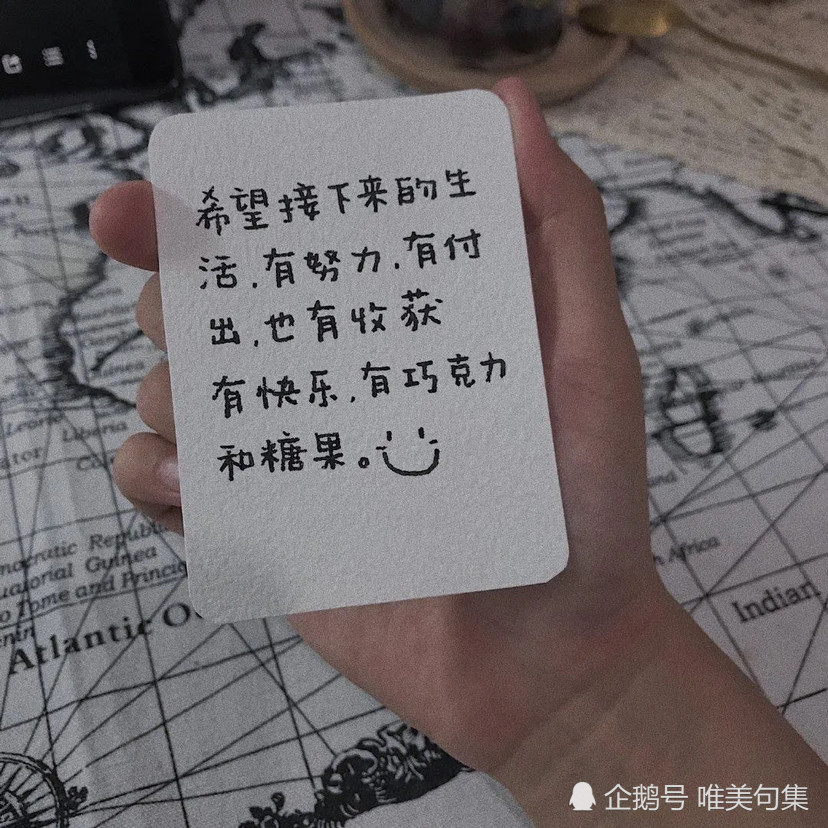 希望接下来的生
活,有努力,有付
出,也有收获
有快乐,有巧克力
和糖果。
Leone
Liberia
Equatorial Guinea
Atlantic
Africa
Indian
企鹅号 唯美句集